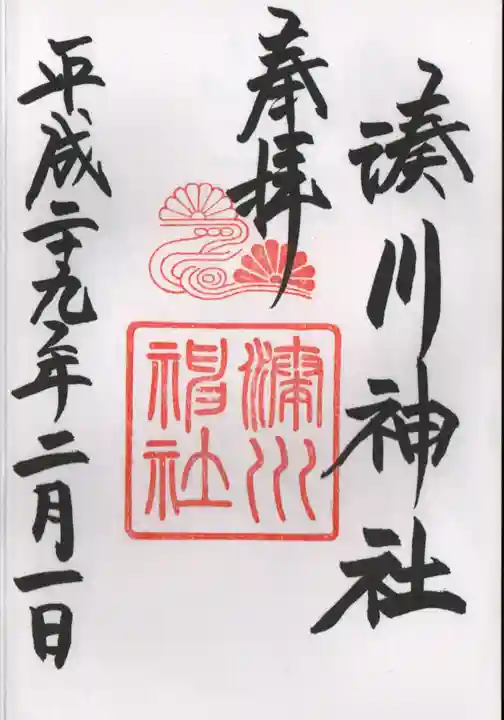 奉拝
湊川神社
湊川神社
平成二十九年二月一日